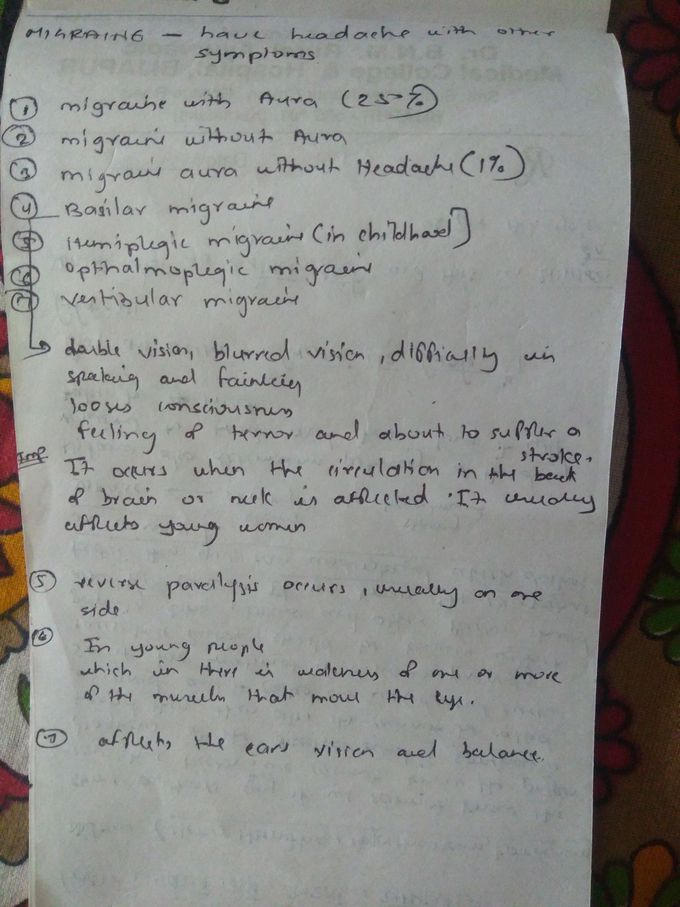 MIGRAINE - have headache with other
symptoms
① migraine with Aura (25%)
② migraine without Aura
③ migrain aura without Headache (1%)
④ Basilar migraine
⑤ Hemiplegic migraine (in childhood]
⑥ opthalmoplegic migraine
⑦ vestibular migraine
double vision, blurred vision, difficulty in
speaking and fainting
looses consciousness
feeling of terror and about to suffer a
stroke.
Imp It occurs when the circulation in the back
of brain or neck is affected. It usually
affects young women
⑤ reverse paralysis occurs, usually on one
side
⑥ In young people
which in there is weakness of one or more
of the muscles that move the eye.
⑦ affects the ears vision and balance.
Medical College & Hospital, BIJAPUR